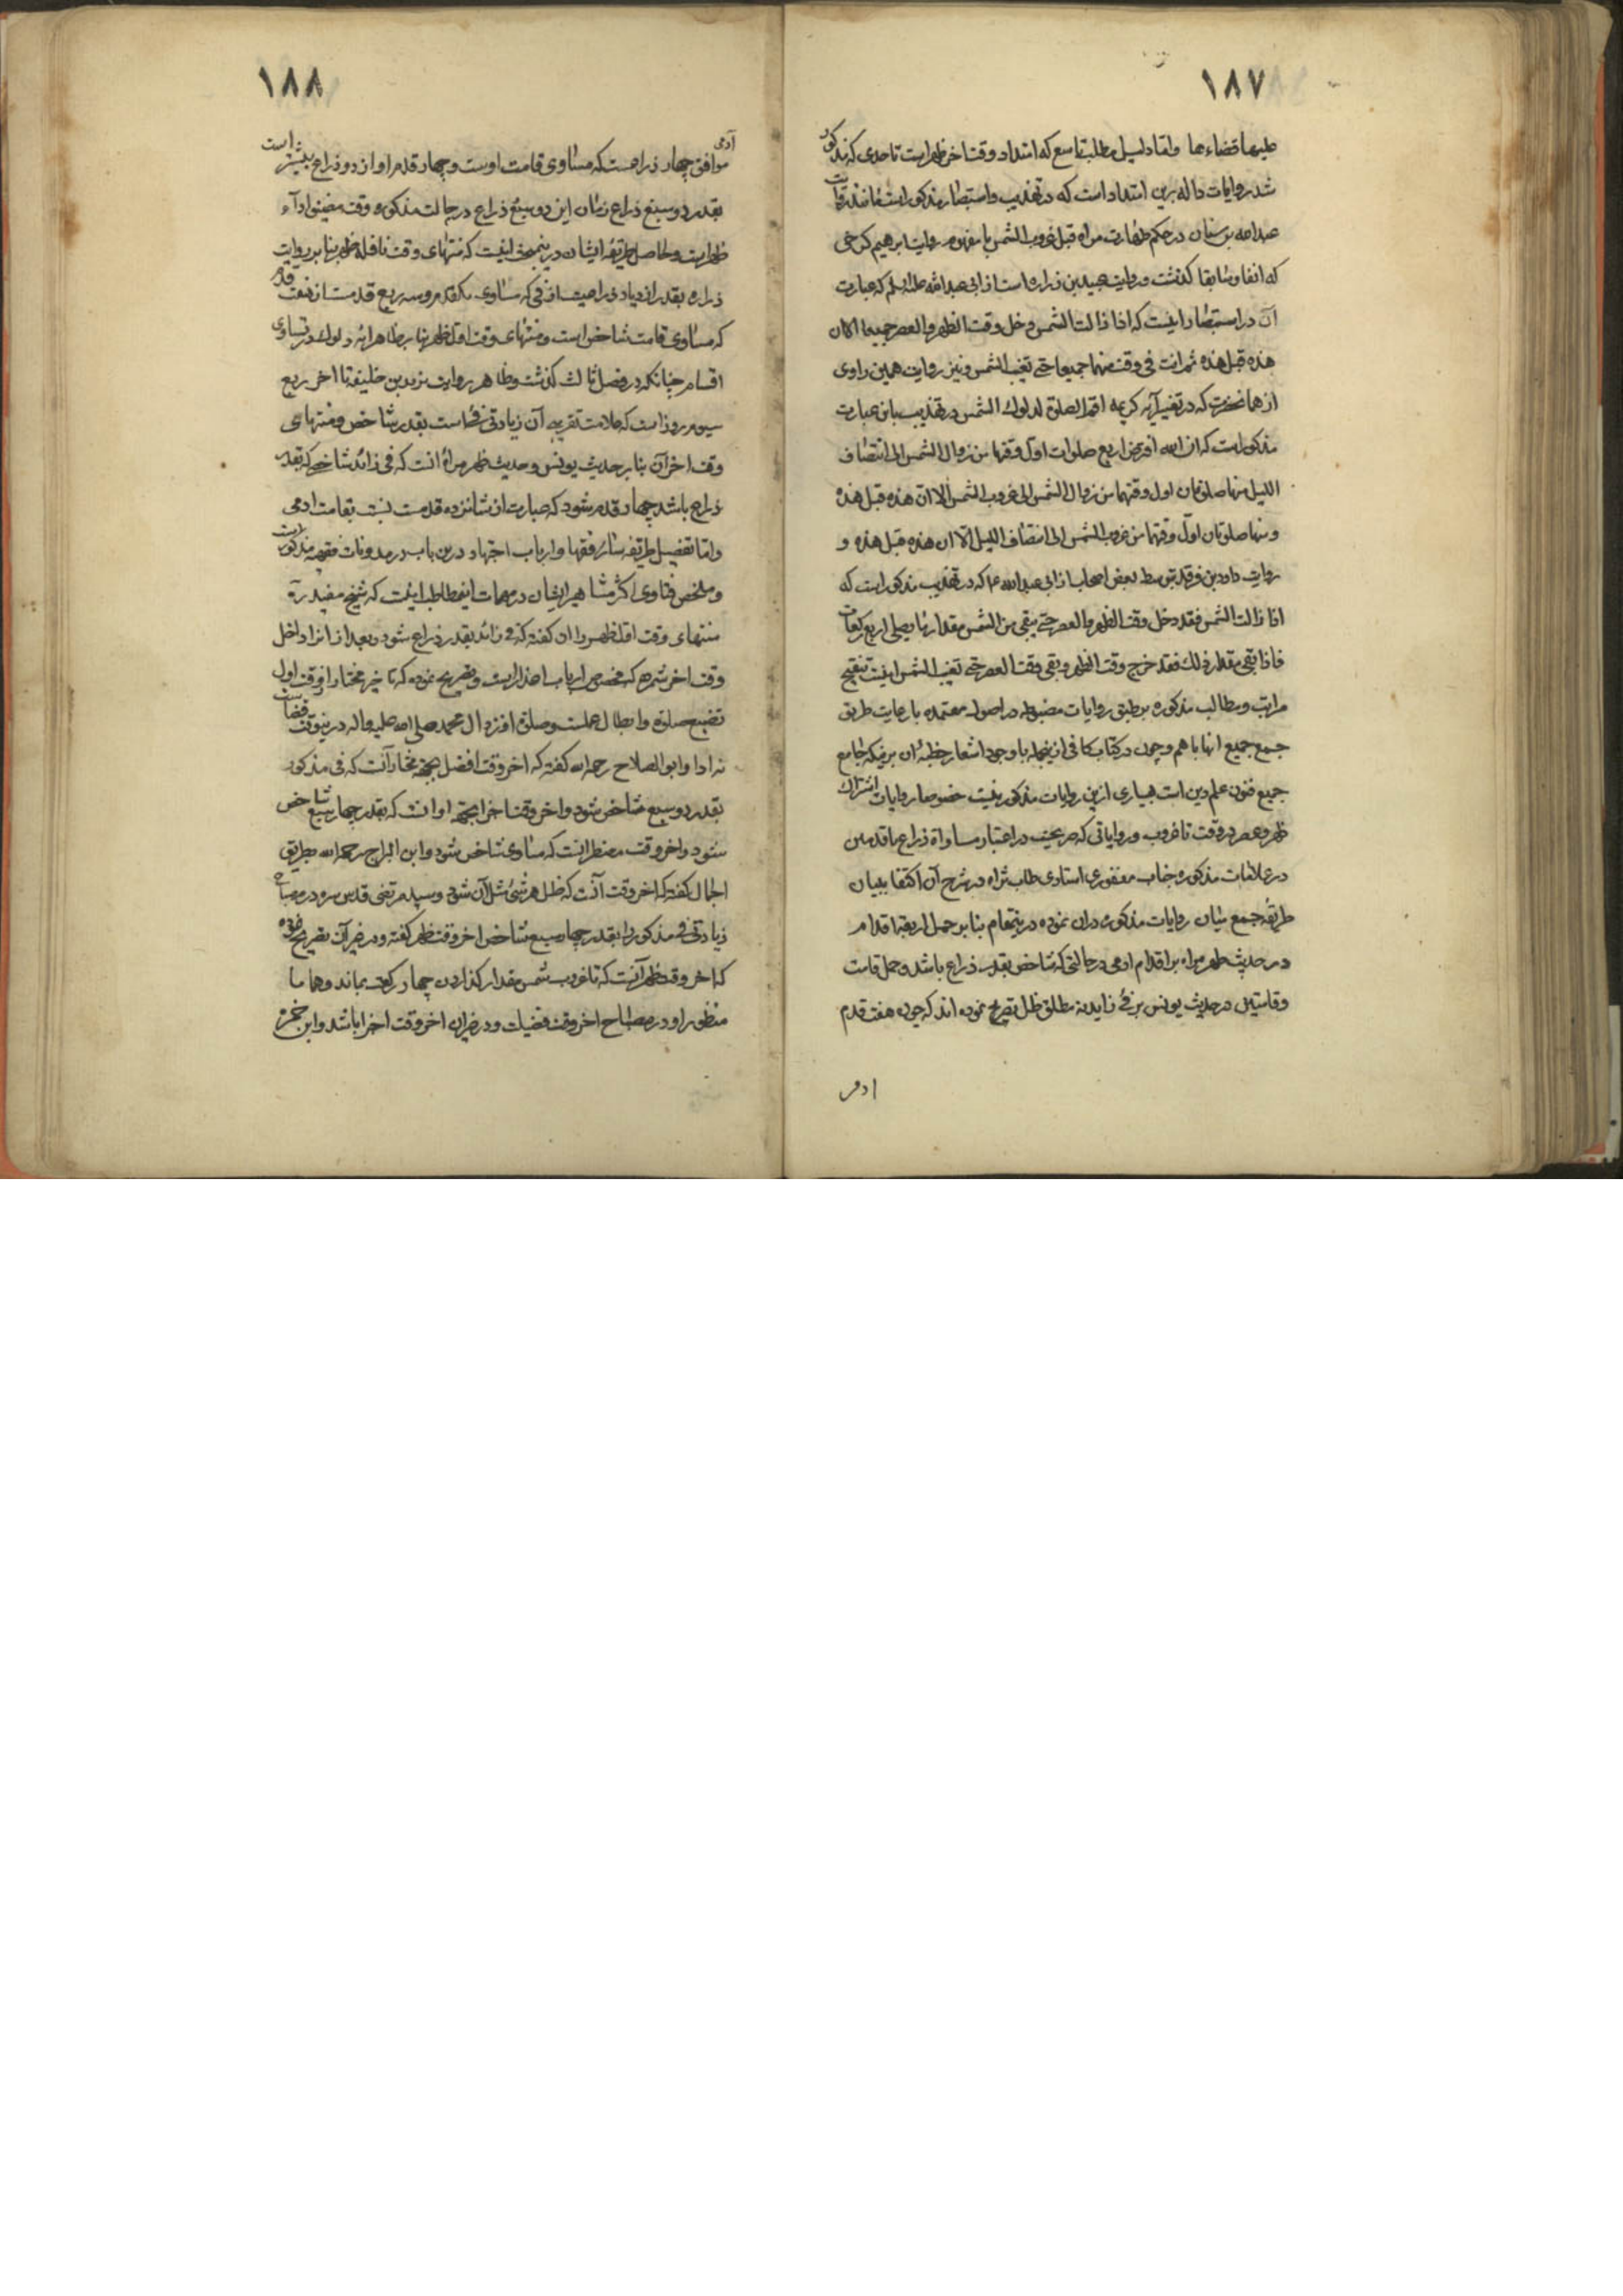 ١٨٧
علیها قضاءها واما دلیل مطلب تاسع که امتداد وقت اخر ظهر است تا حدی که مذکور
شد روایات داله برین امتداد است که در تهذیب واستبصار مذکور است مانند روایت
عبدالله بن سنان در حکم طهارت مراه قبل غروب الشمس با مفهوم روایت ابرهیم کرخی
که انفا وسابقا کذشت وروایت عبید بن زراره است از ابی عبدالله علیه السلم که عبارت
آن در استبصار اینست که اذا زالت الشمس دخل وقت الظهر والعصر جمیعا الا ان
هذه قبل هذه ثم انت فی وقت منهما جمیعا حتی تغیب الشمس ونیز روایت همین راوی
از همانحضرت که در تفسیر آیه کریمه اقم الصلوة لدلوك الشمس در تهذیب باین عبارت
مذکور است که ان الله افترض اربع صلوات اول وقتها من زوال الشمس الی انتصاف
اللیل منها صلوتان اول وقتهما من زوال الشمس الی غروب الشمس الا ان هذه قبل هذه
ومنها صلوتان اول وقتهما من غروب الشمس الی انتصاف اللیل الا ان هذه قبل هذه و
روایت داود بن فرقد بتوسط بعض اصحاب از ابی عبدالله ع که در تهذیب مذکور است که
اذا زالت الشمس فقد دخل وقت الظهر والعصر حتی یبقی من الشمس مقدار ما یصلی اربع رکعات
فاذا بقی مقدار ذلك فقد خرج وقت الظهر وبقی وقت العصر حتی تغیب الشمس اینست تنقیح
مراتب ومطالب مذکوره بر طبق روایات مضبوطه در اصول معتمده با رعایت طریق
جمع جمیع انها باهم وچون در کتاب کافی ازینجمله با وجود اشعار خطبه ان برینکه جامع
جمیع فنون علم دین است بسیاری ازین روایات مذکور نیست خصوصا روایات اشتراك
ظهر وعصر در وقت تا غروب وروایاتی که صریحند در اعتبار مساواة ذراع با قدمین
در علامات مذکوره جناب مغفوری استادی طاب ثراه در شرح آن اکتفا ببیان
طریقه جمع میان روایات مذکوره دران نموده درینمقام بنابر حمل اربعة اقدام
در حدیث طهر مراه بر اقدام ادمی در حالتی که شاخص بقدر ذراع باشد وحمل قامت
وقامتین در حدیث یونس بر فئ زاید نه مطلق ظل تصریح نموده اند که چون هفت قدم
ادمی
١٨٨
آدمی موافق چهار ذراعست که مساوی قامت اوست وچهار قدم او از دو ذراع بیشتر است
بقدر دو سبع ذراع زمان این دو سبع ذراع در حالت مذکوره وقت مضیق اداء
ظهر است وحاصل طریقه ایشان درینمبحث اینست که منتهای وقت نافله ظهر بنابر روایت
زراره بقدر ازدیاد ذراعیست از فئ که مساوی یکقدم وسه ربع قدمست از هفت قدم
که مساوی قامت شاخص است ومنتهای وقت اول ظهر بنابر ظاهر ایه دلوك در تساوی
اقسام چنانکه در فصل ثالث کذشت وظاهر روایت یزید بن خلیفه تا اخر ربع
سیوم روز است که علامت تقریبی آن زیادتی فئ است بقدر شاخص ومنتهای
وقت اخر آن بنابر حدیث یونس وحدیث طهر مراة انست که فئ زائد شاخصی که بقدر
ذراع باشد چهار قدم شود که عبارت از شانزده قدمست نسبت بقامت ادمی
واما تفصیل طریقه سائر فقها وارباب اجتهاد درین باب در مدونات فقهیه مذکور است
وملخص فتاوی اکثر مشاهیر ایشان در مهمات اینمطالب اینست که شیخ مفید ره
منتهای وقت اول ظهر را ان کفته که فئ زائد بقدر ذراع شود وبعد از انرا داخل
وقت اخر شمرده که مخصوص ارباب اعذار است وتصریح نموده که تاخیر مختار از وقت اول
تضییع صلوة وابطال عملست وصلوة او نزد ال محمد صلی الله علیه واله درینوقت قضاست
نه ادا وابوالصلاح رحمه الله کفته که اخر وقت افضل بجهة مختار آنست که فئ مذکور
بقدر دو سبع شاخص شود واخر وقت اجزا بجهة او انست که بقدر چهار سبع شاخص
شود واخر وقت مضطر انست که مساوی شاخص شود وابن البراج رحمه الله بطریق
اجمال کفته که اخر وقت آنست که ظل هر شئ مثل آن شود وسید مرتضی قدس سره در مصباح
زیادتی فئ مذکور را بقدر چهار سبع شاخص اخر وقت ظهر کفته ودر غیر آن تصریح نموده
که اخر وقت ظهر آنست که تا غروب شمس مقدار کذاردن چهار رکعت بماند وهمانا
منظور او در مصباح اخر وقت فضیلت ودر غیر ان اخر وقت اجزا باشد وابن حمزه